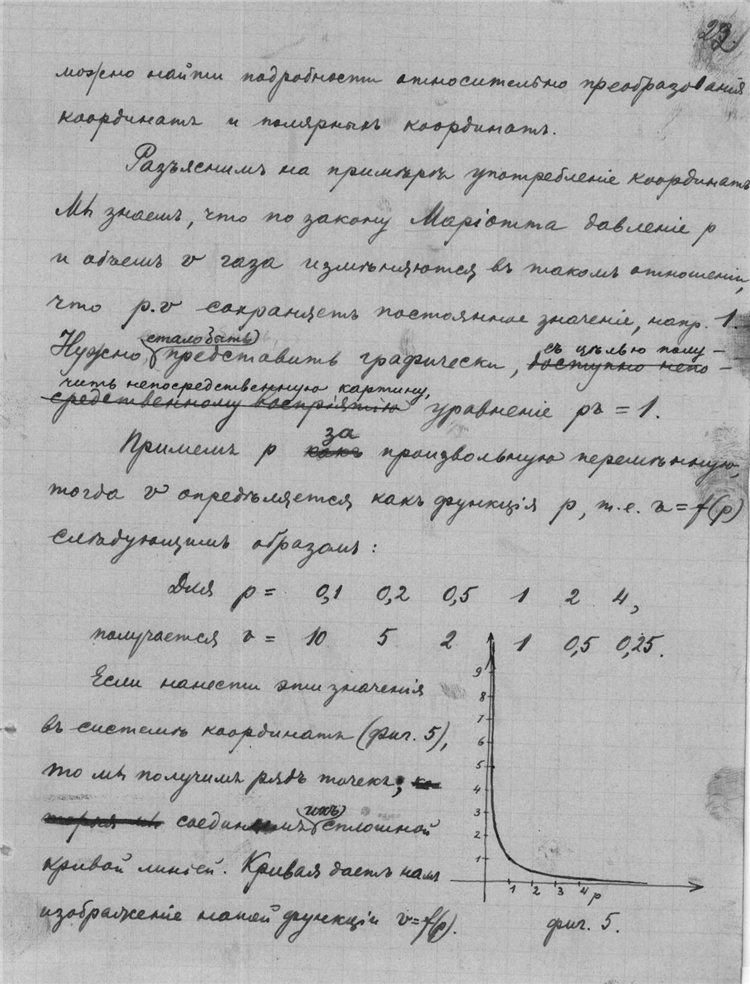 23
можно найти подробности относительно преобразованія
координатъ и полярныхъ координатъ.
Разъяснимъ на примѣрѣ употребленіе координатъ
Мы знаемъ, что по закону Маріотта давленіе p
и объемъ v газа измѣняются въ такомъ отношеніи,
что p.v сохраняетъ постоянное значеніе, напр. 1.
стало быть
съ цѣлью полу-
Нужно представить графически, доступно непо-
чить непосредственную картину,
средственному воспріятію уравненіе pv = 1.
за
Примемъ p какъ произвольную перемѣнную,
тогда v опредѣляется какъ функція p, т.е. v = f(p)
слѣдующимъ образомъ:
Для p = 0,1 0,2 0,5 1 2 4,
получается v = 10 5 2 1 0,5 0,25.
Если нанести эти значенія
въ системѣ координатъ (фиг. 5),
то мы получимъ рядъ точекъ;
ихъ
соединимъ сплошной
кривой линіей. Кривая даетъ намъ
изображеніе нашей функціи v = f(p).
9
8
7
6
5
4
3
2
1
1 2 3 4 p
фиг. 5.